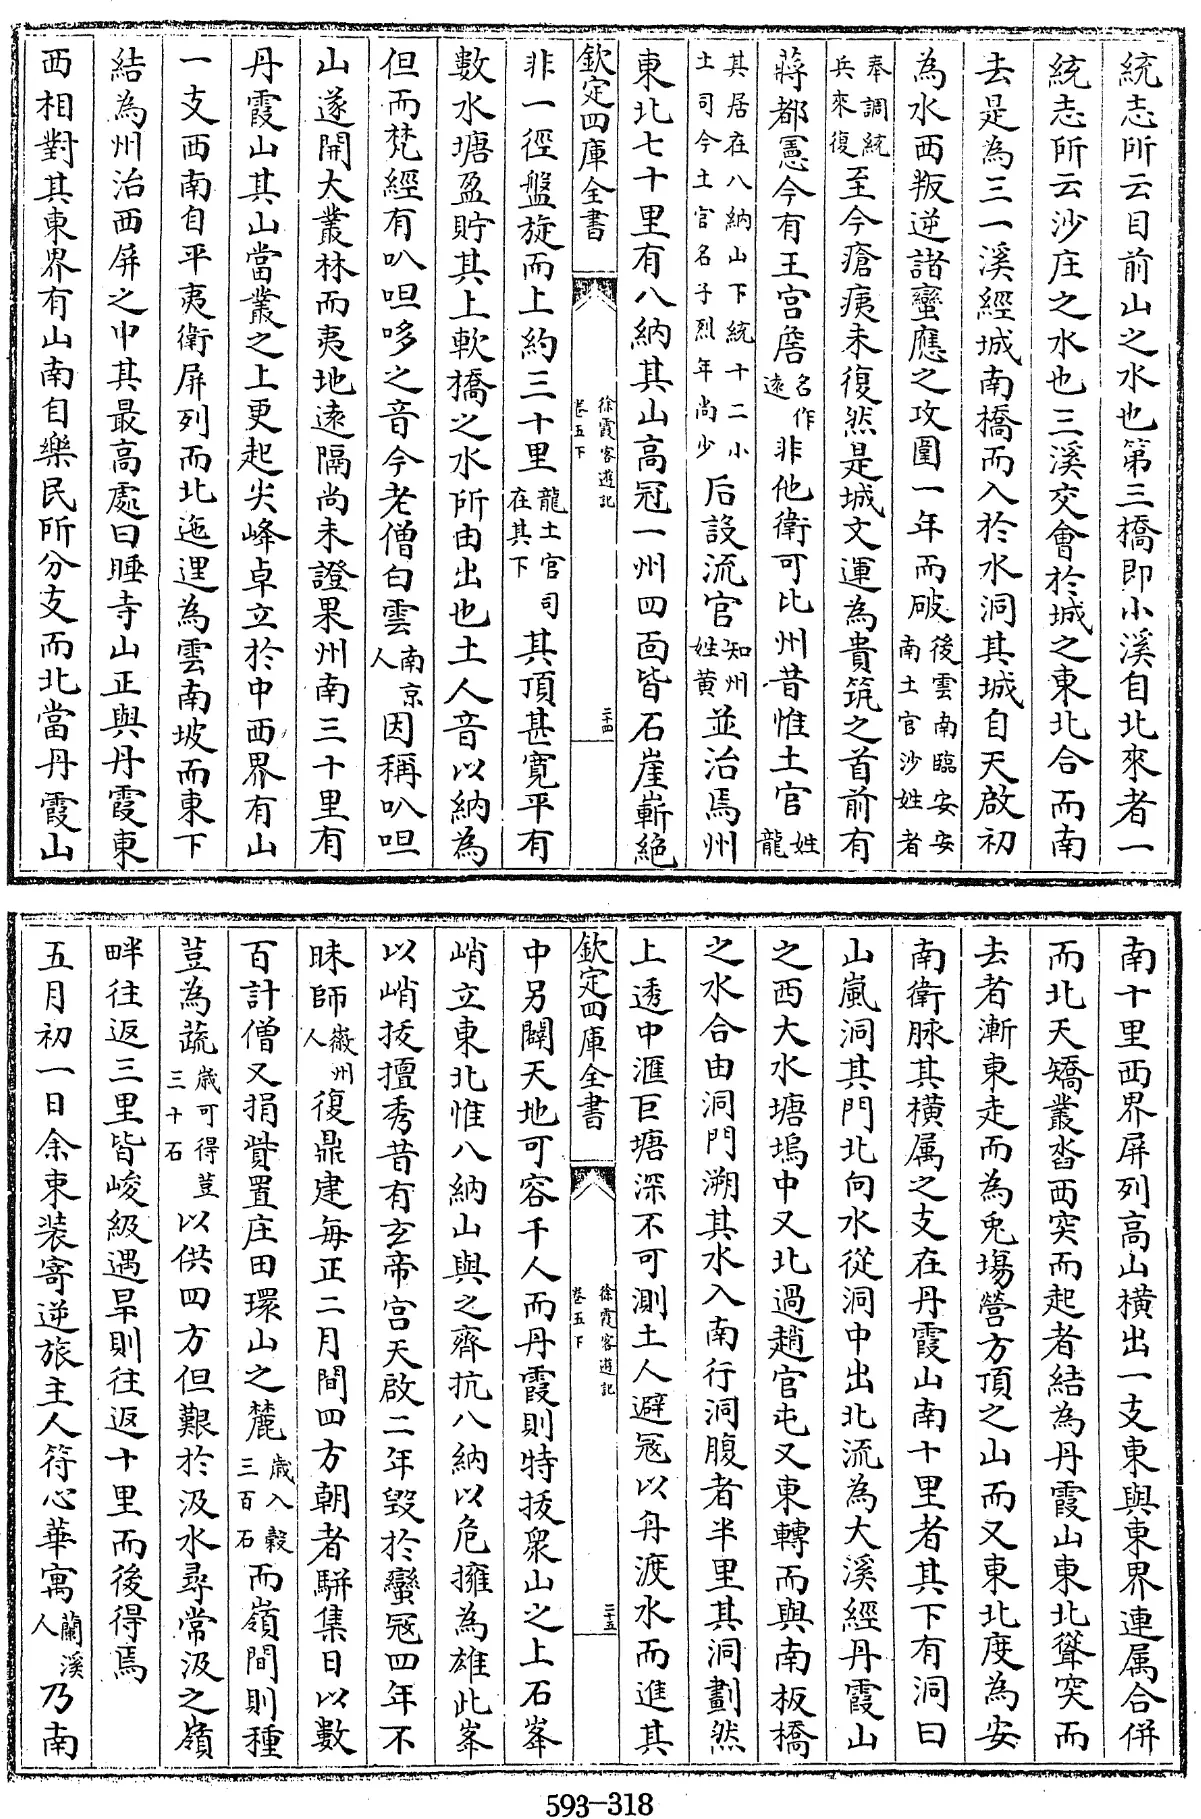 統志所云目前山之水也第三橋即小溪自北來者一
統志所云沙庄之水也三溪交會於城之東北合而南
去是為三一溪經城南橋而入於水洞其城自天啟初
為水西叛逆諸蠻應之攻圍一年而破後雲南臨安安南土官沙姓者
奉調統兵來復至今瘡痍未復然是城文運為貴筑之首前有
蔣都憲今有王宫詹名作遠非他衛可比州昔惟土官姓龍
其居在八納山下統十二小土司今土官名子烈年尚少后設流官知州姓黄並治焉州
東北七十里有八納其山高冠一州四面皆石崖嶄絶
欽定四庫全書
徐霞客遊記
卷五下
二十四
非一徑盤旋而上約三十里龍土官司在其下其頂甚寛平有
數水塘盈貯其上軟橋之水所由出也土人音以納為
但而梵經有叭呾哆之音今老僧白雲南京人因稱叭呾
山遂開大叢林而夷地遠隔尚未證果州南三十里有
丹霞山其山當叢之上更起尖峰卓立於中西界有山
一支西南自平夷衛屏列而北迤𨓦為雲南坡而東下
結為州治西屏之中其最高處曰睡寺山正與丹霞東
西相對其東界有山南自樂民所分支而北當丹霞山
南十里西界屏列高山横出一支東與東界連属合併
而北天矯叢沓西突而起者結為丹霞山東北聳突而
去者漸東走而為兎塲營方頂之山而又東北度為安
南衛脉其横属之支在丹霞山南十里者其下有洞曰
山嵐洞其門北向水從洞中出北流為大溪經丹霞山
之西大水塘塢中又北過趙官屯又東轉而與南板橋
之水合由洞門溯其水入南行洞腹者半里其洞劃然
上透中滙巨塘深不可測土人避冦以舟渡水而進其
欽定四庫全書
徐霞客遊記
卷五下
二十五
中另闢天地可容千人而丹霞則特拔衆山之上石峯
峭立東北惟八納山與之齊抗八納以危擁為雄此峯
以峭拔擅秀昔有玄帝宫天啟二年毁於蠻冦四年不
昧師徽州人復鼎建每正二月間四方朝者駢集日以數
百計僧又捐貲置庄田環山之麓歲入穀三百石而嶺間則種
荳為蔬歲可得荳三十石以供四方但艱於汲水尋常汲之嶺
畔往返三里皆峻級遇旱則往返十里而後得焉
五月初一日余束装寄逆旅主人符心華寓蘭溪人乃南
593-318